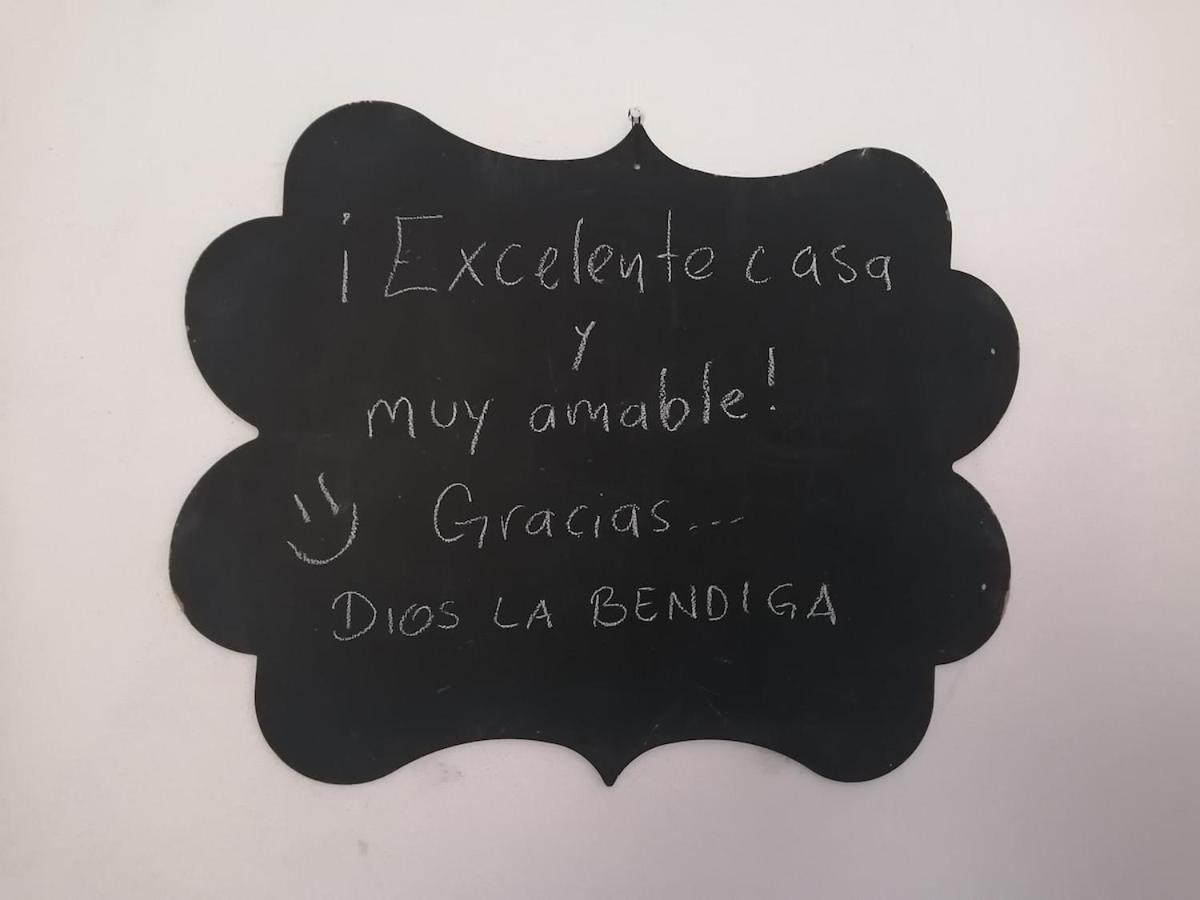 ¡Excelente casa
y
muy amable!
Gracias...
DIOS LA BENDIGA